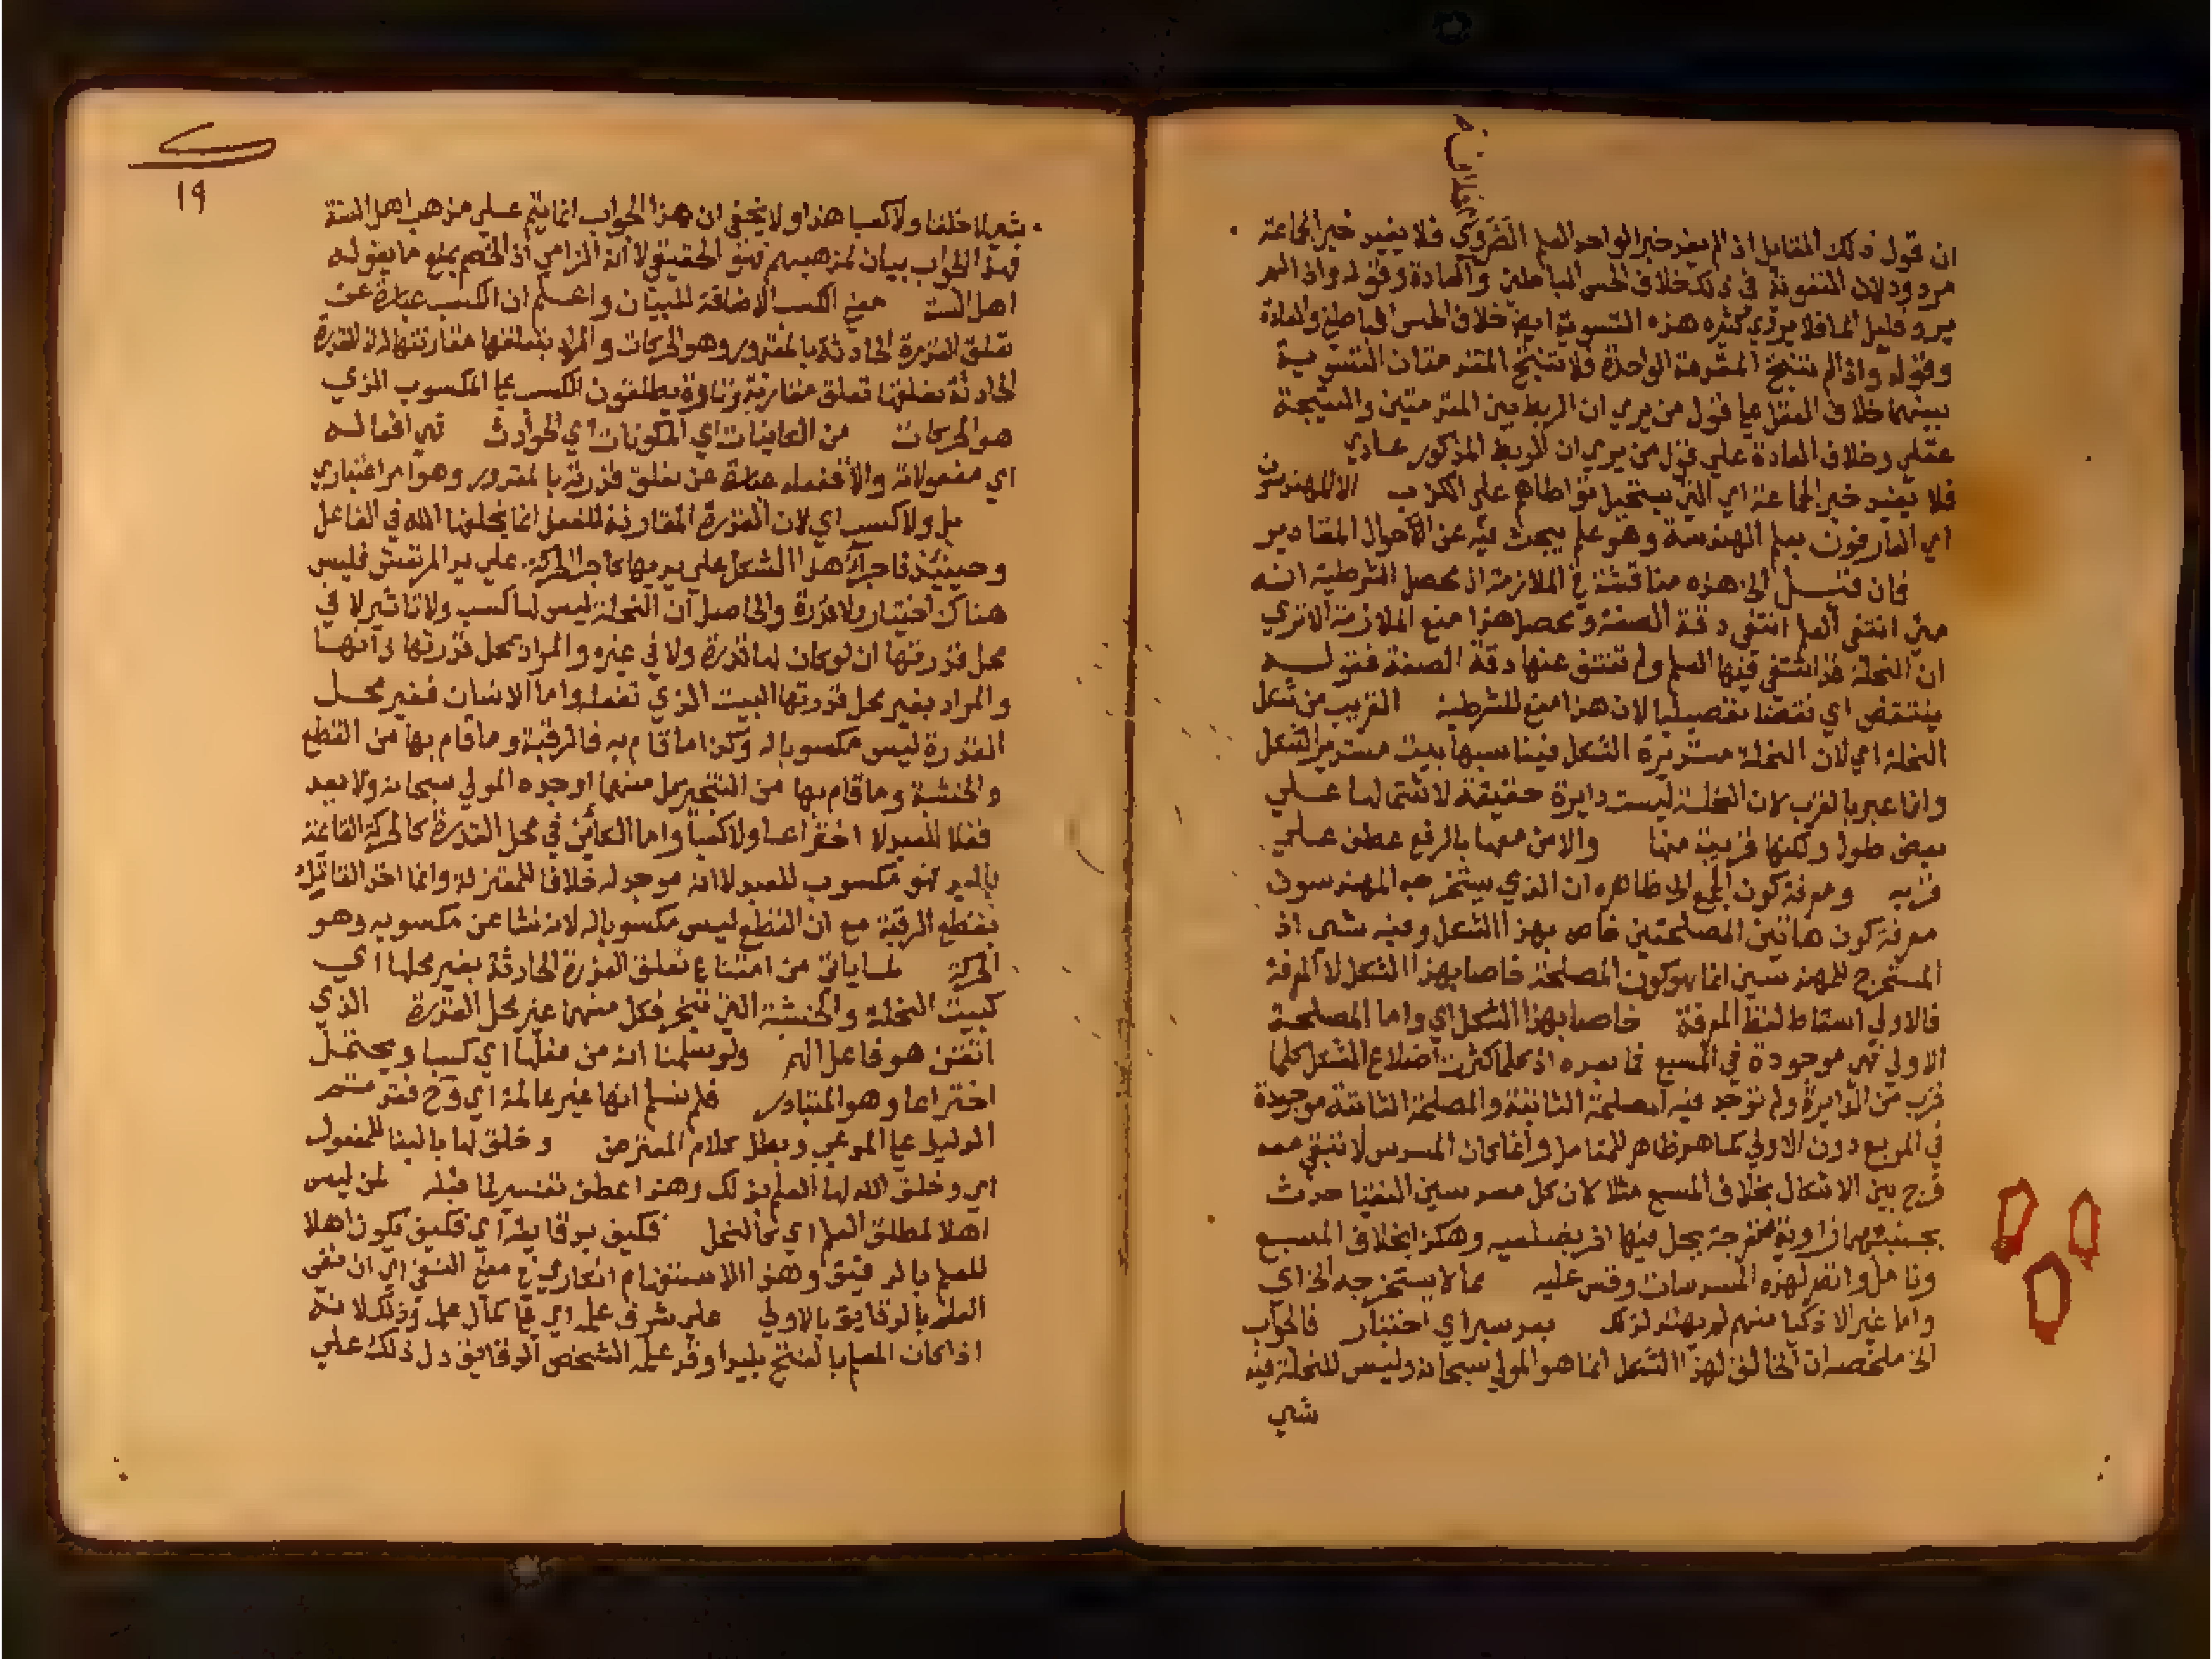 ان قول ذلك القايل اذ الم يفد خبر الواحد العلم الضروري فلا يفيد خبر الجماعة
مردود لان التسوية في ذلك خلاف الحس الباطن والعادة وقوله واذ الم
يرو قليل الما فلا يروي كثيره هذه التسوية ايضا خلاف الحس الباطن والعادة
وقوله واذ الم تنتج المقدمة الواحدة فلا تنتج المقدمتان التسوية
بينهما خلاف العقل علي قول من يري ان الربط بين المقدمتين والنتيجة
عقلي وخلاف العادة علي قول من يري ان الربط المذكور عادي
فلا يفيد خبر الجماعة اي الذين يستحيل تواطاهم علي الكذب الا المهندسون
اي العارفون بعلم الهندسة وهو علم يبحث فيه عن الاحوال المقادير
فان قيل الخ هذه مناقشة في الملازمة اذ محصل الشرطية انه
متي انتفي العلم انتفي دقة الصنعة ومحصل هذا منع الملازمة الا تري
ان النحلة قد انتفي فيها العلم ولم تنتف عنها دقة الصنعة فقوله
ينتقض اي نقضا تفصيليا لان هذا منع للشرطية القريب من شكل
النحلة اي لان النحلة مستديرة الشكل فيناسبها بيت مستدير الشكل
وانما عبر بالقرب لان النحلة ليست دايرة حقيقة لاشتمالها علي
بعض طول ولكنها قريبة منها والامن معها بالرفع عطف علي
قربه ومعرفة كون الخ الخ ظاهره ان الذي يستخرجه المهندسون
معرفة كون هاتين المصلحتين خاص بهذا الشكل وفيه شي اذ
المستخرج للمهندسين انما هو كون المصلحة خاصا بهذا الشكل لا المعرفة
فالاولي اسقاط لفظ المعرفة خاصا بهذا الشكل اي واما المصلحة
الاولي فهي موجودة في المسبع فما بعده اذ كلما كثرت اضلاع الشكل كلما
قرب من الدايرة ولم توجد فيه المصلحة الثانية والمصلحة الثانية موجودة
في المربع دون الاولي كما هو ظاهر للمتامل وانما كان المسدس لا تبقي معه
فرج بين الاشكال بخلاف المسبع مثلا لان كل مسدسين التقيا حدث
بجنبتيهما زاوية منفرجة يحل فيها اخر بضلعيه وهكذا بخلاف المسبع
وتامل وانظر لهذه المسدسات وقس عليه مما لا يستخرجه الخ اي
واما غير الاذكيا منهم لم يهتد لذلك بعد سبر اي اختبار فالجواب
الخ ملخصه ان الخالق لهذا الشكل انما هو المولي سبحانه وليس للنحلة فيه
شي
١٩
شي لا خلقا ولا كسبا هذا ولا يخفي ان هذا الجواب انما يتم علي مذهب اهل السنة
فهذا الجواب بيان لمذهبهم فهو الحقيقي لا انه الزامي اذ الخصم يمنع ما يقوله
اهل السنة معني الكسب الاضافة للبيان واعلم ان الكسب عبارة عن
تعلق القدرة الحادثة بالمقدور وهو الحركات والمراد بتعلقها مقارنتها له اذ القدرة
الحادثة تعلقها تعلق مقارنة وتارة يطلقون الكسب علي المكسوب الذي
هو الحركات من الكاينات اي المكونات اي الحوادث فهي افعاله
اي مفعولاته والا ففعله عبارة عن تعلق قدرته بالمقدور وهو امر اعتباري
بل ولا كسب اي لان القدرة المقارنة للفعل انما يخلقها الله في الفاعل
وحينئذ فاجراء هذا الشكل علي يديها كاجراء الحركة علي يد المرتعش فليس
هناك اختيار ولا قدرة والحاصل ان النحلة ليس لها كسب ولا تاثير لا في
محل قدرتها ان لو كان لها قدرة ولا في غيره والمراد بمحل قدرتها ذاتها
والمراد بغير محل قدرتها البيت الذي تفعله واما الانسان فغير محل
القدرة ليس مكسوبا له وكذا ما قام به فالرقبة وما قام بها من القطع
والخشبة وما قام بها من التنجير كل منهما اوجده المولي سبحانه ولا يعد
فعلا للعبد لا اختراعا ولا كسبا واما الكاين في محل القدرة كالحركة القايمة
باليد فهو مكسوب للعبد لا انه موجد له خلافا للمعتزلة وانما اخذ القاتل
بقطع الرقبة مع ان القطع ليس مكسوبا له لانه نشا عن مكسوبه وهو
الحركة لما ياتي من امتناع تعلق القدرة الحادثة بغير محلها اي
كبيت النحلة والخشبة التي تنجر فكل منهما غير محل القدرة الذي
اتقن هو فاعل الهم ولو سلمنا انه من فعلها اي كسبا ويحتمل
اختراعا وهو المتبادر فلم نسلم انها غير عالمة اي وح فقد تم
الدليل علي المدعي وبطل كلام المعترض وخلق لها بالبنا للمفعول
اي وخلق الله لها العلم بذلك وهذا عطف تفسير لما قبله لمن ليس
اهلا لمطلق العلم اي كالنحل فكيف بدقايقه اي فكيف يكون اهلا
للعلم بالدقيق وهذا الاستفهام انكاري في معني النفي اي ان نفي
العلم بالدقايق بالاولي علي شرف علمه اي علي كمال علمه وذلك لانه
اذا كان المعلم بالفتح بليدا وقد علمه الشخص الدقايق دل ذلك علي